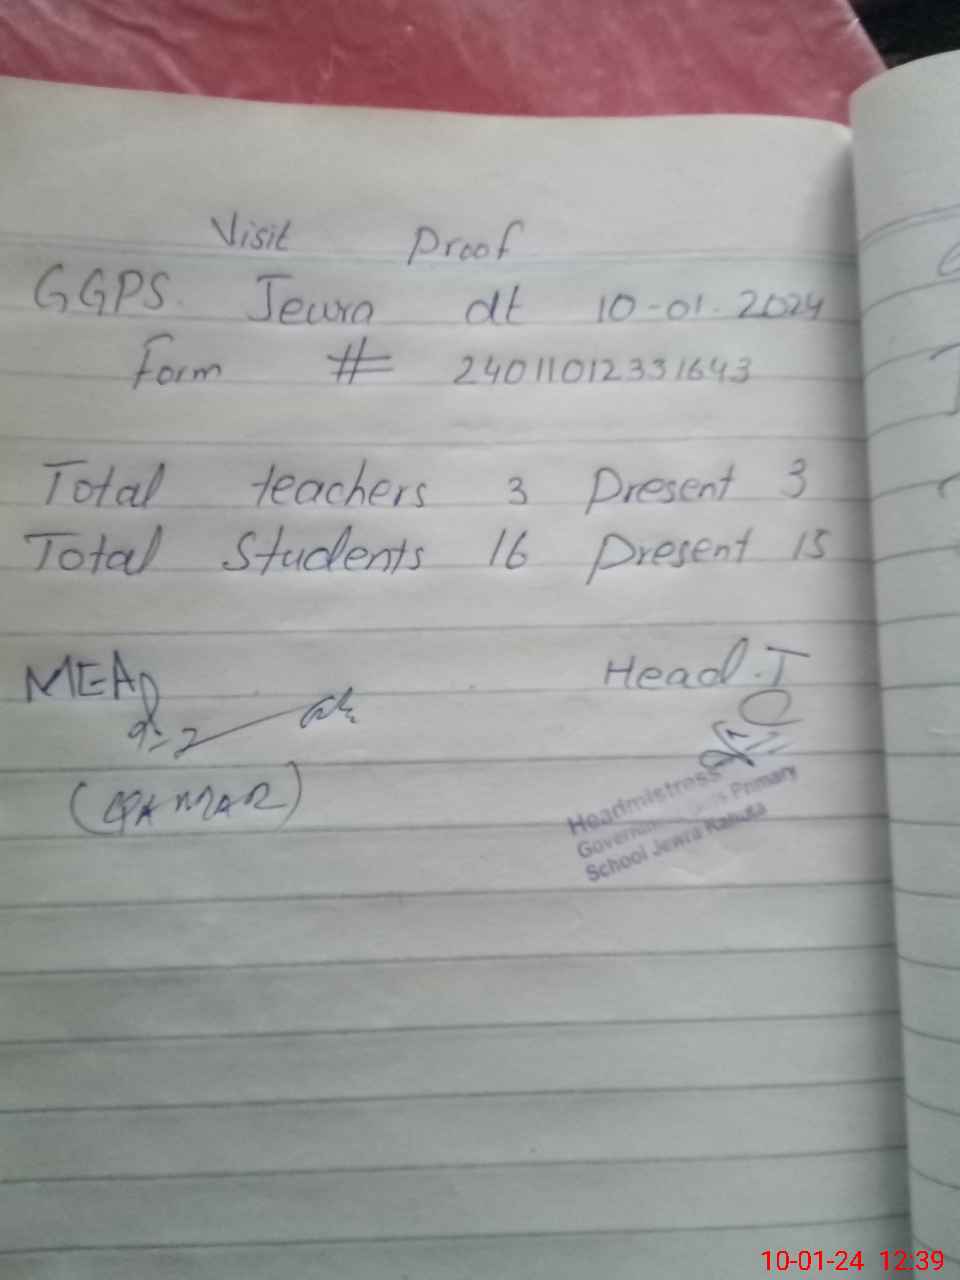 Visit Proof
GGPS. Jewra dt 10-01-2024
Form # 24011012331643
Total teachers 3 Present 3
Total Students 16 Present 15
MEA
Head.T
(QAMAR)
Headmistress
Government Girls Primary
School Jewra Kahuta
10-01-24 12:39